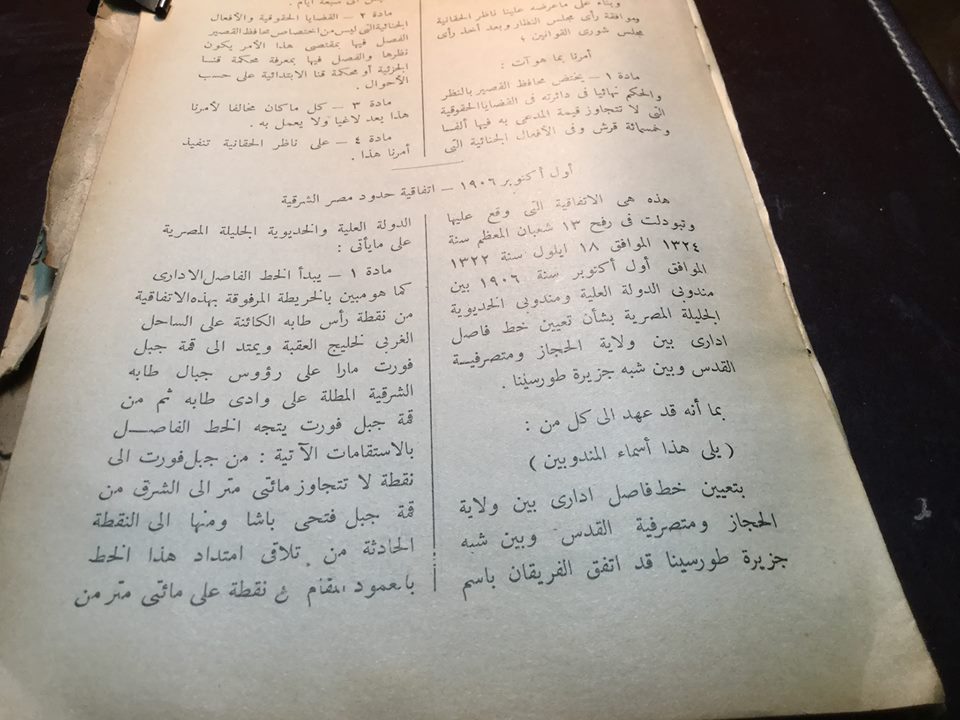 وبناء على ماعرضه علينا ناظر الحقانية
وموافقة رأى مجلس النظار وبعد أخذ رأى
مجلس شورى القوانين ؛
أمرنا بما هو آت :
مادة ١ – يختص محافظ القصير بالنظر
والحكم نهائيا فى دائرته فى القضايا الحقوقية
التى لا تتجاوز قيمة المدعى به فيها ألفا
وخمسمائة قرش وفى الأفعال الجنائية التى
مادة ٢ – القضايا الحقوقية والأفعال
الجنائية التى ليس من اختصاص محافظ القصير
الفصل فيها بمقتضى هذا الأمر يكون
نظرها والفصل فيها بمعرفة محكمة قنا
الجزئية أو محكمة قنا الابتدائية على حسب
الأحوال .
مادة ٣ – كل ما كان مخالفا لأمرنا
هذا يعد لاغيا ولا يعمل به .
مادة ٤ – على ناظر الحقانية تنفيذ
أمرنا هذا .
أول أكتوبر ١٩٠٦ – اتفاقية حدود مصر الشرقية
هذه هى الاتفاقية التى وقع عليها
وتبودلت فى رفح ١٣ شعبان المعظم سنة
١٣٢٤ الموافق ١٨ ايلول سنة ١٣٢٢
الموافق أول أكتوبر سنة ١٩٠٦ بين
مندوبى الدولة العلية ومندوبى الخديوية
الجليلة المصرية بشأن تعيين خط فاصل
ادارى بين ولاية الحجاز ومتصرفية
القدس وبين شبه جزيرة طورسينا .
بما أنه قد عهد الى كل من :
( يلى هذا أسماء المندوبين )
بتعيين خط فاصل ادارى بين ولاية
الحجاز ومتصرفية القدس وبين شبه
جزيرة طورسينا قد اتفق الفريقان باسم
الدولة العلية والخديوية الجليلة المصرية
على مايأتى :
مادة ١ – يبدأ الخط الفاصل الادارى
كما هو مبين بالخريطة المرفوقة بهذه الاتفاقية
من نقطة رأس طابه الكائنة على الساحل
الغربى لخليج العقبة ويمتد الى قمة جبل
فورت مارا على رؤوس جبال طابه
الشرقية المطلة على وادى طابه ثم من
قمة جبل فورت يتجه الخط الفاصل
بالاستقامات الآتية : من جبل فورت الى
نقطة لا تتجاوز مائتى متر الى الشرق من
قمة جبل فتحى باشا ومنها الى النقطة
الحادثة من تلاقى امتداد هذا الخط
بالعمود المقام من نقطة على مائتى متر من